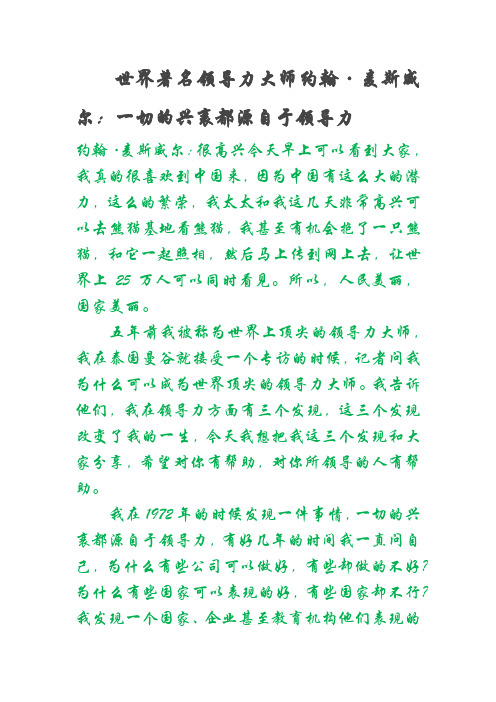 世界著名领导力大师约翰·麦斯威
尔：一切的兴衰都源自于领导力
约翰·麦斯威尔：很高兴今天早上可以看到大家，
我真的很喜欢到中国来，因为中国有这么大的潜
力，这么的繁荣，我太太和我这几天非常高兴可
以去熊猫基地看熊猫，我甚至有机会抱了一只熊
猫，和它一起照相，然后马上传到网上去，让世
界上 25 万人可以同时看见。所以，人民美丽，
国家美丽。
五年前我被称为世界上顶尖的领导力大师，
我在泰国曼谷就接受一个专访的时候，记者问我
为什么可以成为世界顶尖的领导力大师。我告诉
他们，我在领导力方面有三个发现，这三个发现
改变了我的一生，今天我想把我这三个发现和大
家分享，希望对你有帮助，对你所领导的人有帮
助。
我在 1972 年的时候发现一件事情，一切的兴
衰都源自于领导力，有好几年的时间我一直问自
己，为什么有些公司可以做好，有些却做的不好？
为什么有些国家可以表现的好，有些国家却不行？
我发现一个国家、企业甚至教育机构他们表现的